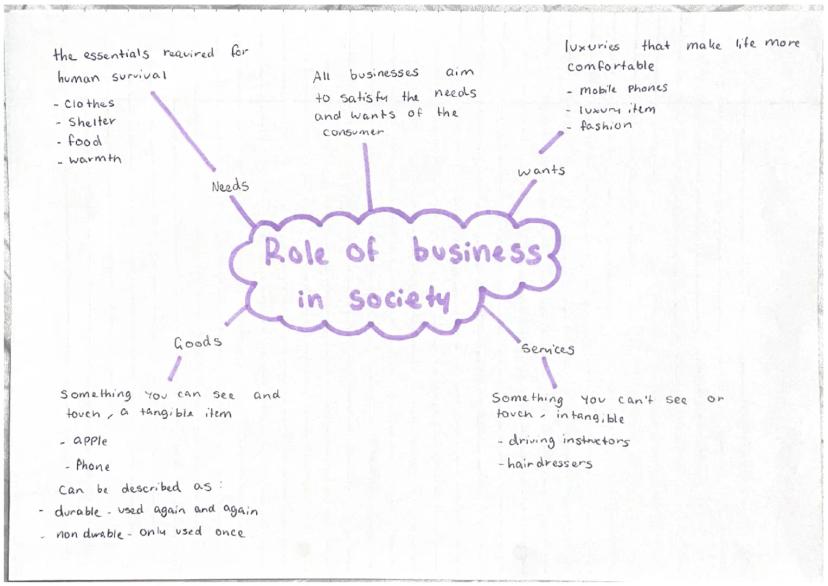 the essentials required for
human survival
- Clothes
- Shelter
- food
- warmth
Needs
All businesses aim
to satisfy the needs
and wants of the
consumer
luxuries that make life more
comfortable
- mobile phones
- luxury item
- fashion
wants
Role of business
in society
Goods
Something you can see and
touch, a tangible item
- apple
- Phone
Can be described as:
- durable - used again and again
- non durable - only used once
Services
Something you can't see or
touch - intangible
- driving instructors
- hairdressers